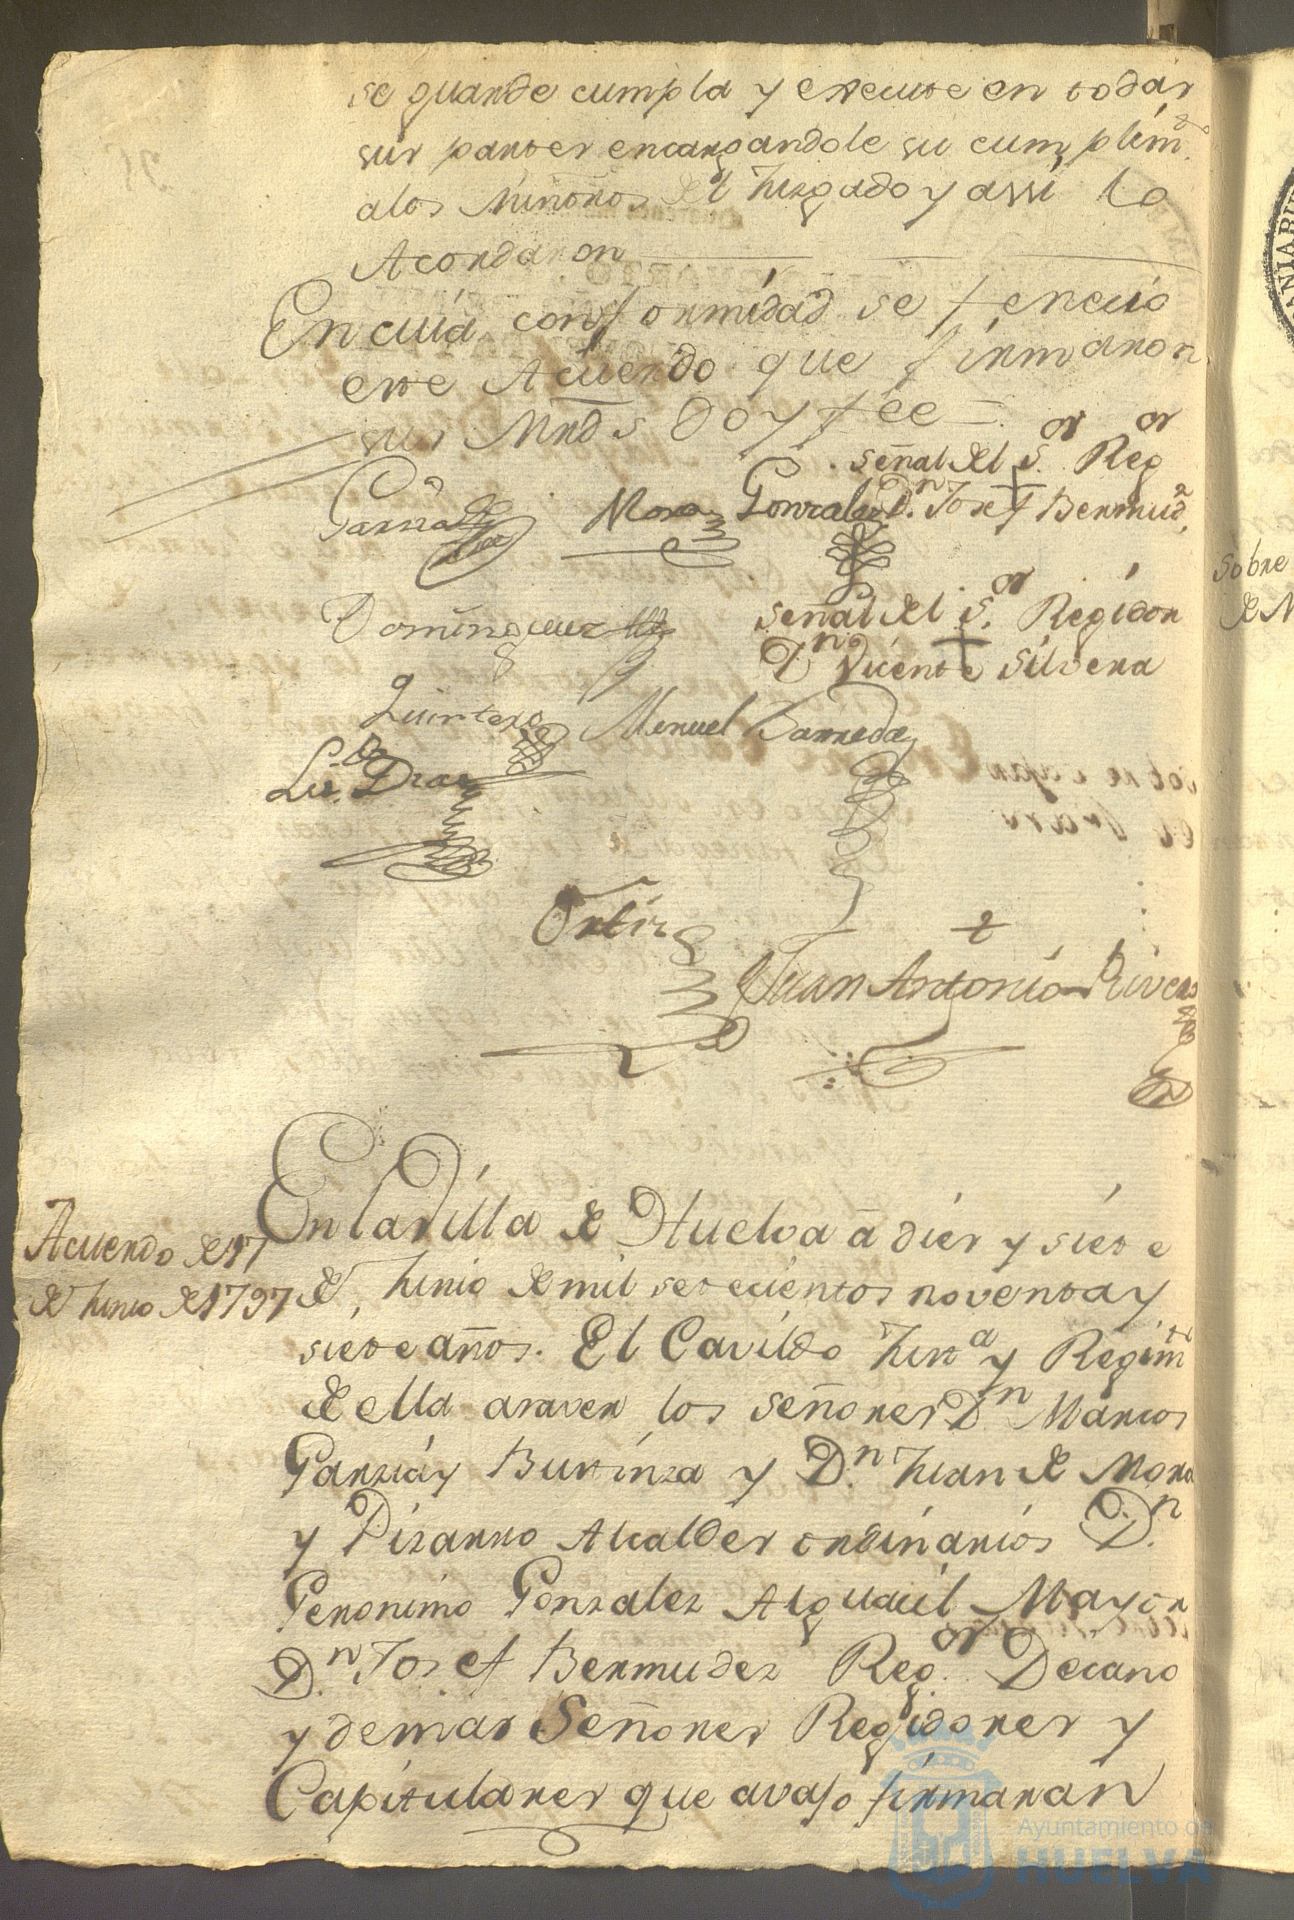 se guarde cumpla y execute en todas
sus partes encargandole su cumplim.to
a los Miñones del Juzgado y assi lo
Acordaron
En cuia conformidad se fenecio
este Acuerdo que firmaron
sus Mrds Doy fee
señal del S.or Reg.or
Garzia Mora Gonzalez D.n Josef Bermud.z
Dominguez señal del S.or Regidor
D.n Vicente Silvera
Quintero Manuel Barreda
Liz.do Diaz
Ortiz
Juan Antonio Rivera
Acuerdo de 17
de Junio de 1797
En la Villa de Huelva à diez y siete
de Junio de mil setecientos noventa y
siete años. El Cavildo Just.a y Regim.to
de ella a saver los señores D.n Marcos
Garzia y Burinza y D.n Juan de Mora
y Pizarro Alcaldes ordinarios D.n
Geronimo Gonzalez Alguacil Mayor
D.n Josef Bermudez Reg.or Decano
y demas Señores Regidores y
Capitulares que avajo firmaran
Sobre
de
Ayuntamiento de
HUELVA